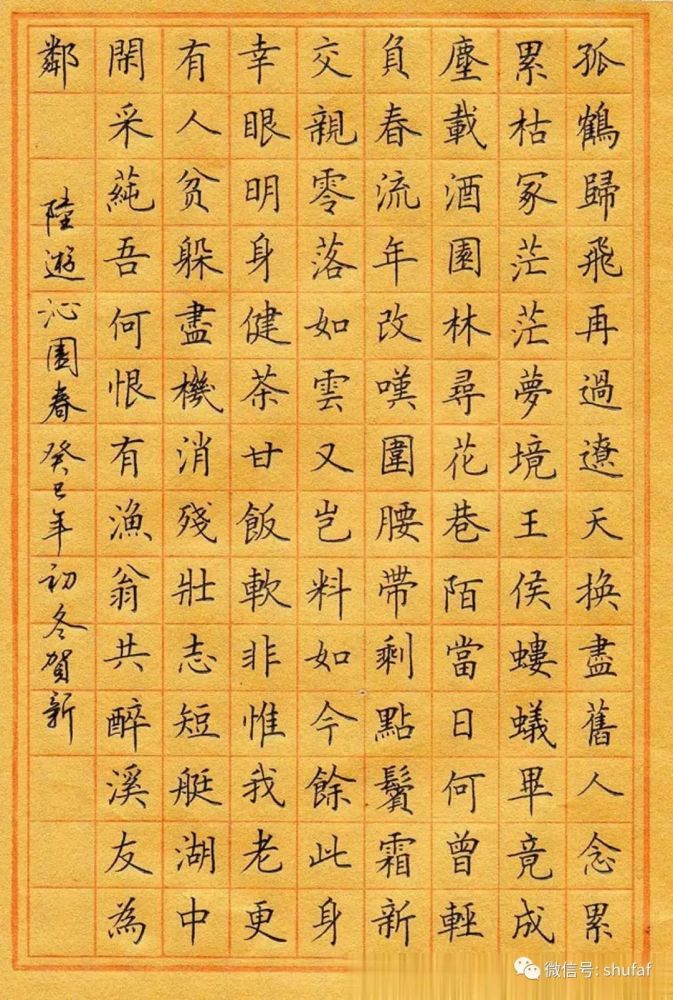 孤鶴歸飛再過遼天換盡舊人念累
累枯冢茫茫夢境王侯螻蟻畢竟成
塵載酒園林尋花巷陌當日何曾輕
負春流年改嘆圍腰帶剩點鬢霜新
交親零落如雲又豈料如今餘此身
幸眼明身健茶甘飯軟非惟我老更
有人貧躲盡機消殘壯志短艇湖中
閑采蒓吾何恨有漁翁共醉溪友為
鄰
陸遊沁園春癸巳年初冬賀新
微信号: shufaf